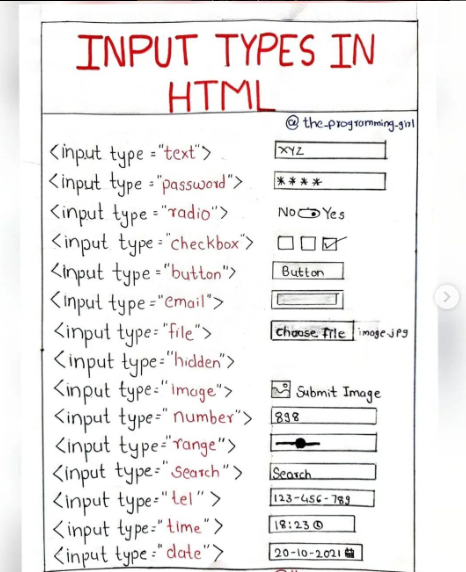 INPUT TYPES IN
HTML
@the_programming_girl
<input type="text"> XYZ
<input type="password"> ****
<input type="radio"> No Yes
<input type="checkbox">
<input type="button"> Button
<input type="email">
<input type="file"> Choose File image.jpg
<input type="hidden">
<input type="image"> Submit Image
<input type="number"> 898
<input type="range">
<input type="Search"> Search
<input type="tel"> 123-456-789
<input type="time"> 18:23
<input type="date"> 20-10-2021